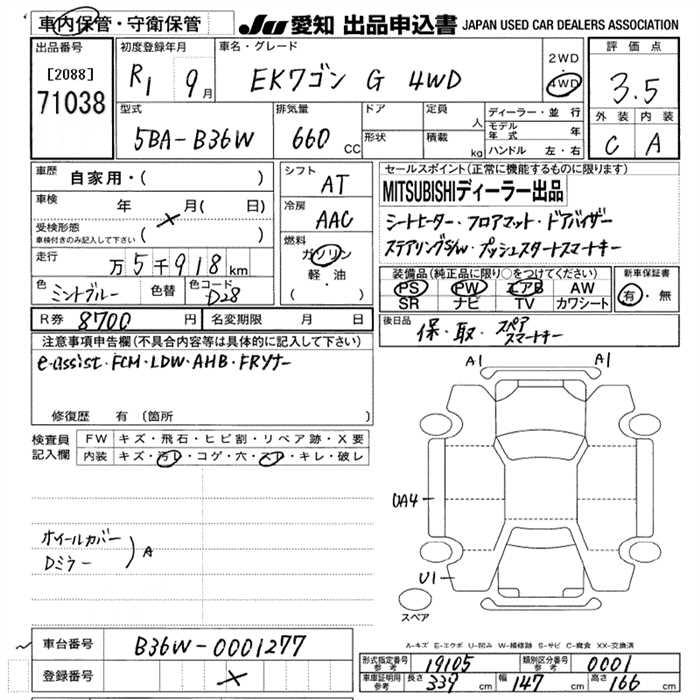 車内保管・守衛保管
JU 愛知 出品申込書 JAPAN USED CAR DEALERS ASSOCIATION
出品番号 [2088] 71038
初度登録年月 R1 9月
車名・グレード EKワゴン G 4WD
2WD・4WD
評価点 3.5
外装 C 内装 A
型式 5BA-B36W
排気量 660 CC
ドア 形状
定員 人
積載 kg
ディーラー・並行
モデル年式 年
ハンドル 左・右
車歴 自家用・( )
車検 年 月( 日)
受検形態 車検付きのみ記入して下さい ( )
走行 万5千918km
色 ミントブルー 色替 色コード D28
シフト AT
冷房 AAC
燃料 ガソリン・軽油 ( )
セールスポイント(正常に機能するものに限ります)
MITSUBISHIディーラー出品
シートヒーター・フロアマット・ドアバイザー
ステアリングS/W・プッシュスタートスマートキー
装備品(純正品に限り○をつけてください)
PS PW エアB AW
SR ナビ TV カワシート
新車保証書 有・無
R券 8700円
名変期限 月 日
後日品 保・取・スペアスマートキー
注意事項申告欄(不具合内容等は具体的に記入して下さい)
e-assist・FCM・LDW・AHB・FRソナー
修復歴 有(箇所 )
検査員記入欄
FW キズ・飛石・ヒビ割・リペア跡・X要
内装 キズ・汚レ・コゲ・穴・スレ・キレ・破レ
ホイールカバー
Dミラー
A
A1 A1
UA4
U1
スペア
A-キズ E-エクボ U-凹み W-補修跡 S-サビ C-腐食 XX-交換済
車台番号 B36W-0001277
登録番号
形式指定番号 参考 19105
類別区分番号 参考 0001
車庫証明用 参考 長さ 339 cm 幅 147 cm 高さ 166 cm